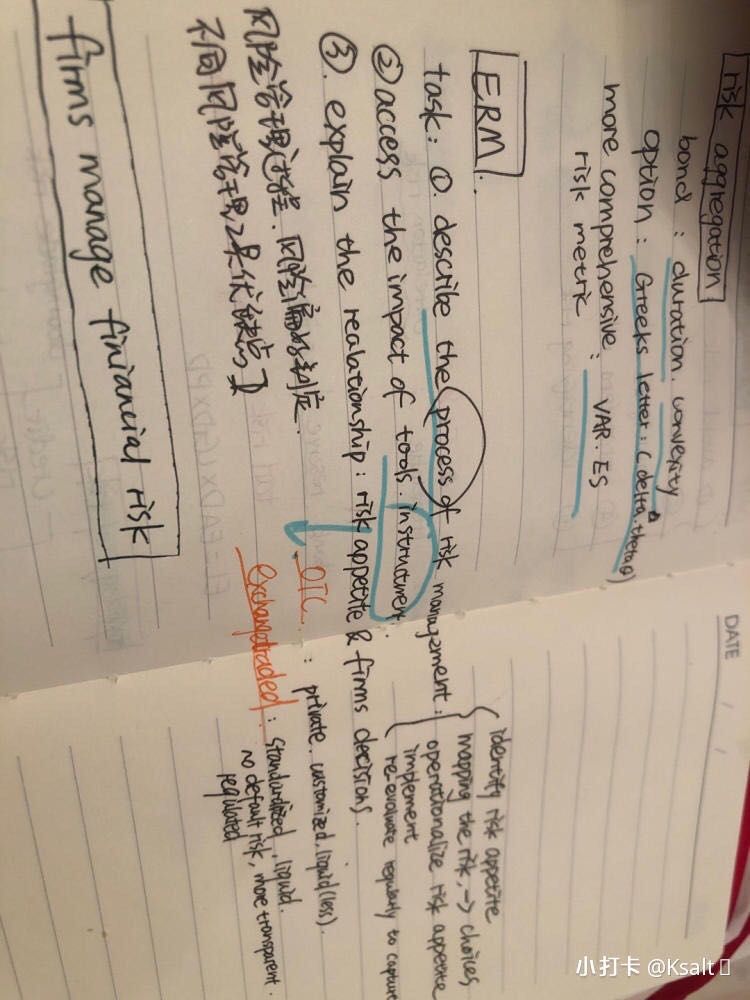 risk aggregation
bond : duration. convexity
option : Greeks letter : ( delta Δ. theta θ)
more comprehensive : VAR. ES
risk metric
ERM
task: ①. describe the process of risk management :
identify risk appetite
mapping the risk, -> choices,
operationalize risk appetite
implement
re-evaluate regularly to capture
② access the impact of tools. instructment.
③. explain the realationship : risk appetite & firms decisions.
风险管理过程. 风险偏好制定.
OTC : private. customized, liquid(less).
不同风险管理工具优缺点
exchange traded : standardized, liquid.
no default risk, more transparent.
regulated
firms manage finiancial risk
DATE / /
小打卡 @Ksalt